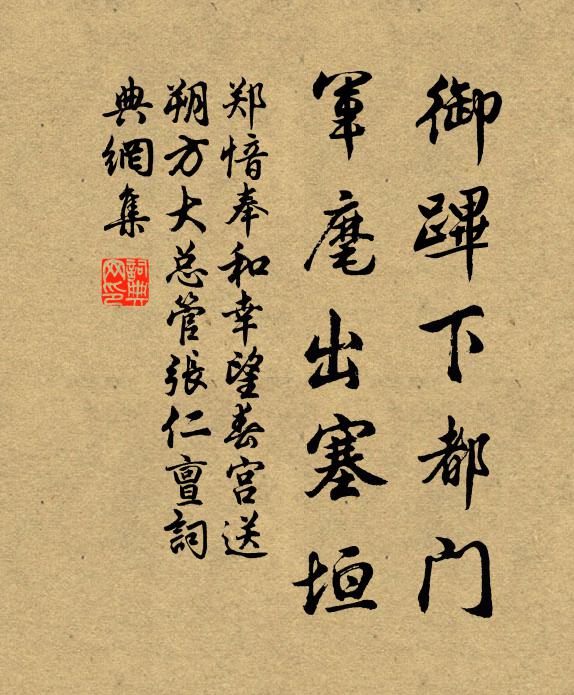 御蹕下都门
军麾出塞垣
郑愔奉和幸望春宫送
朔方大总管張仁亶詞
典網集
詞典网印